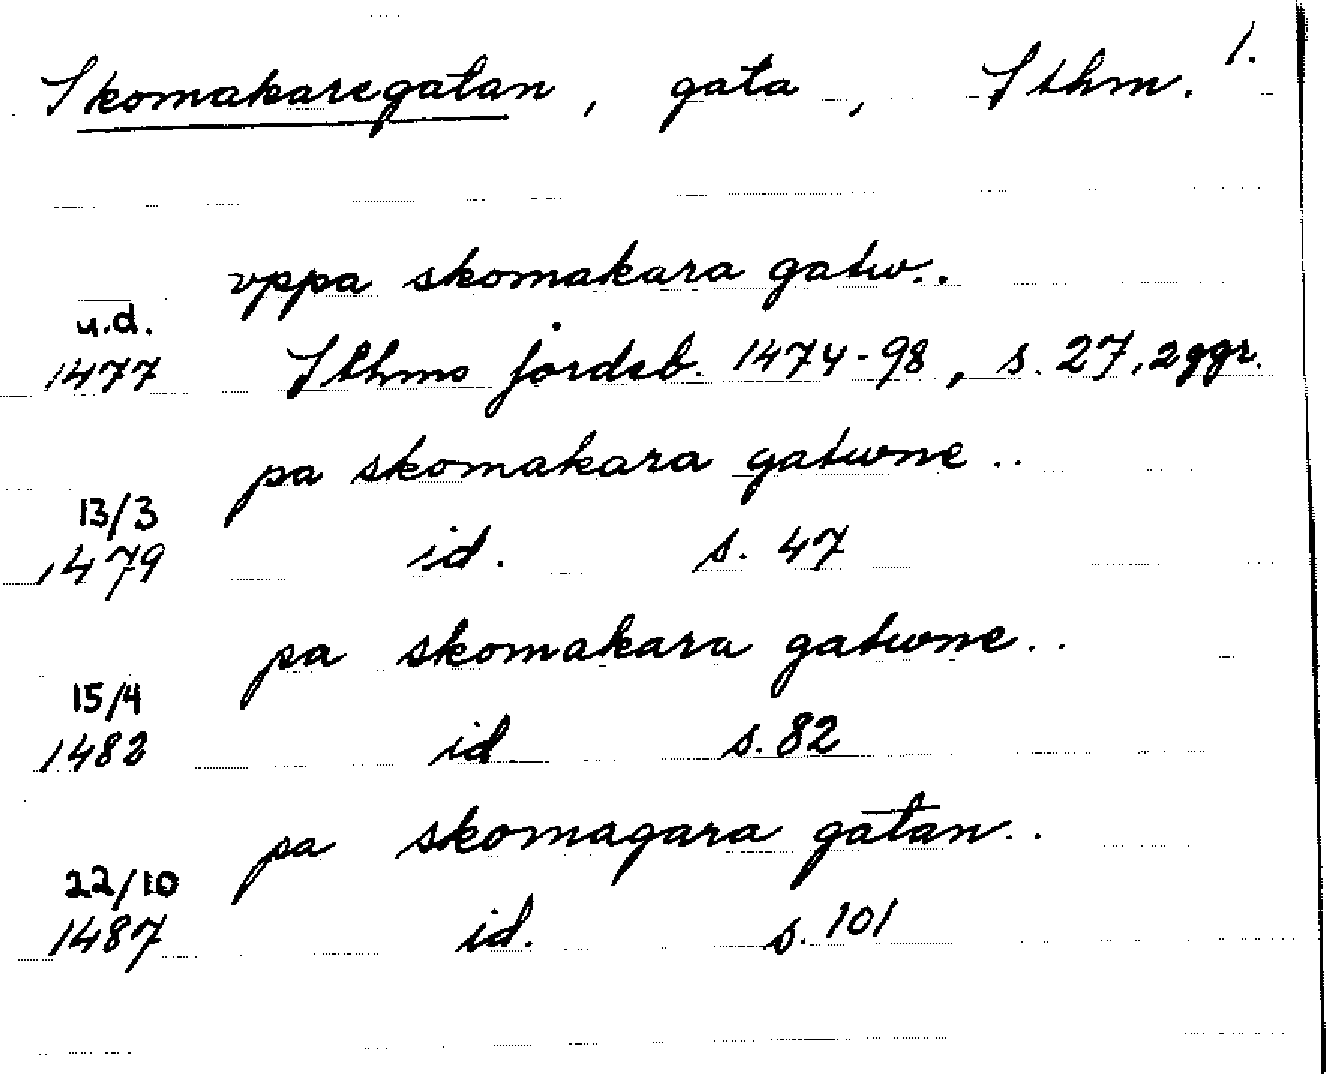 1.
Skomakaregatan, gata, Sthm.
vppa skomakara gatw..
u.d.
1477 Sthms jordeb. 1474-98, s. 27, 2 ggr.
pa skomakara gatwne..
13/3
1479 id. s. 47
pa skomakara gatwne..
15/4
1482 id s. 82
pa skomagara gatan..
22/10
1487 id. s. 101